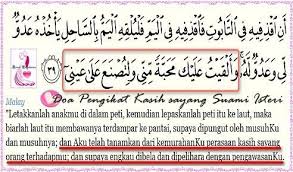 أَنِ ٱقْذِفِيهِ فِى ٱلتَّابُوتِ فَٱقْذِفِيهِ فِى ٱلْيَمِّ فَلْيُلْقِهِ ٱلْيَمُّ بِٱلسَّاحِلِ يَأْخُذْهُ عَدُوٌّ
لِّى وَعَدُوٌّ لَّهُۥ ۚ وَأَلْقَيْتُ عَلَيْكَ مَحَبَّةً مِّنِّى وَلِتُصْنَعَ عَلَىٰ عَيْنِىٓ ٣٩
Malay
Doa Pengikat Kasih sayang Suami Isteri
"Letakkanlah anakmu di dalam peti, kemudian lepaskanlah peti itu ke laut, maka
biarlah laut itu membawanya terdampar ke pantai, supaya dipungut oleh musuhKu
dan musuhnya; dan Aku telah tanamkan dari kemurahanKu perasaan kasih sayang
orang terhadapmu; dan supaya engkau dibela dan dipelihara dengan pengawasanKu.